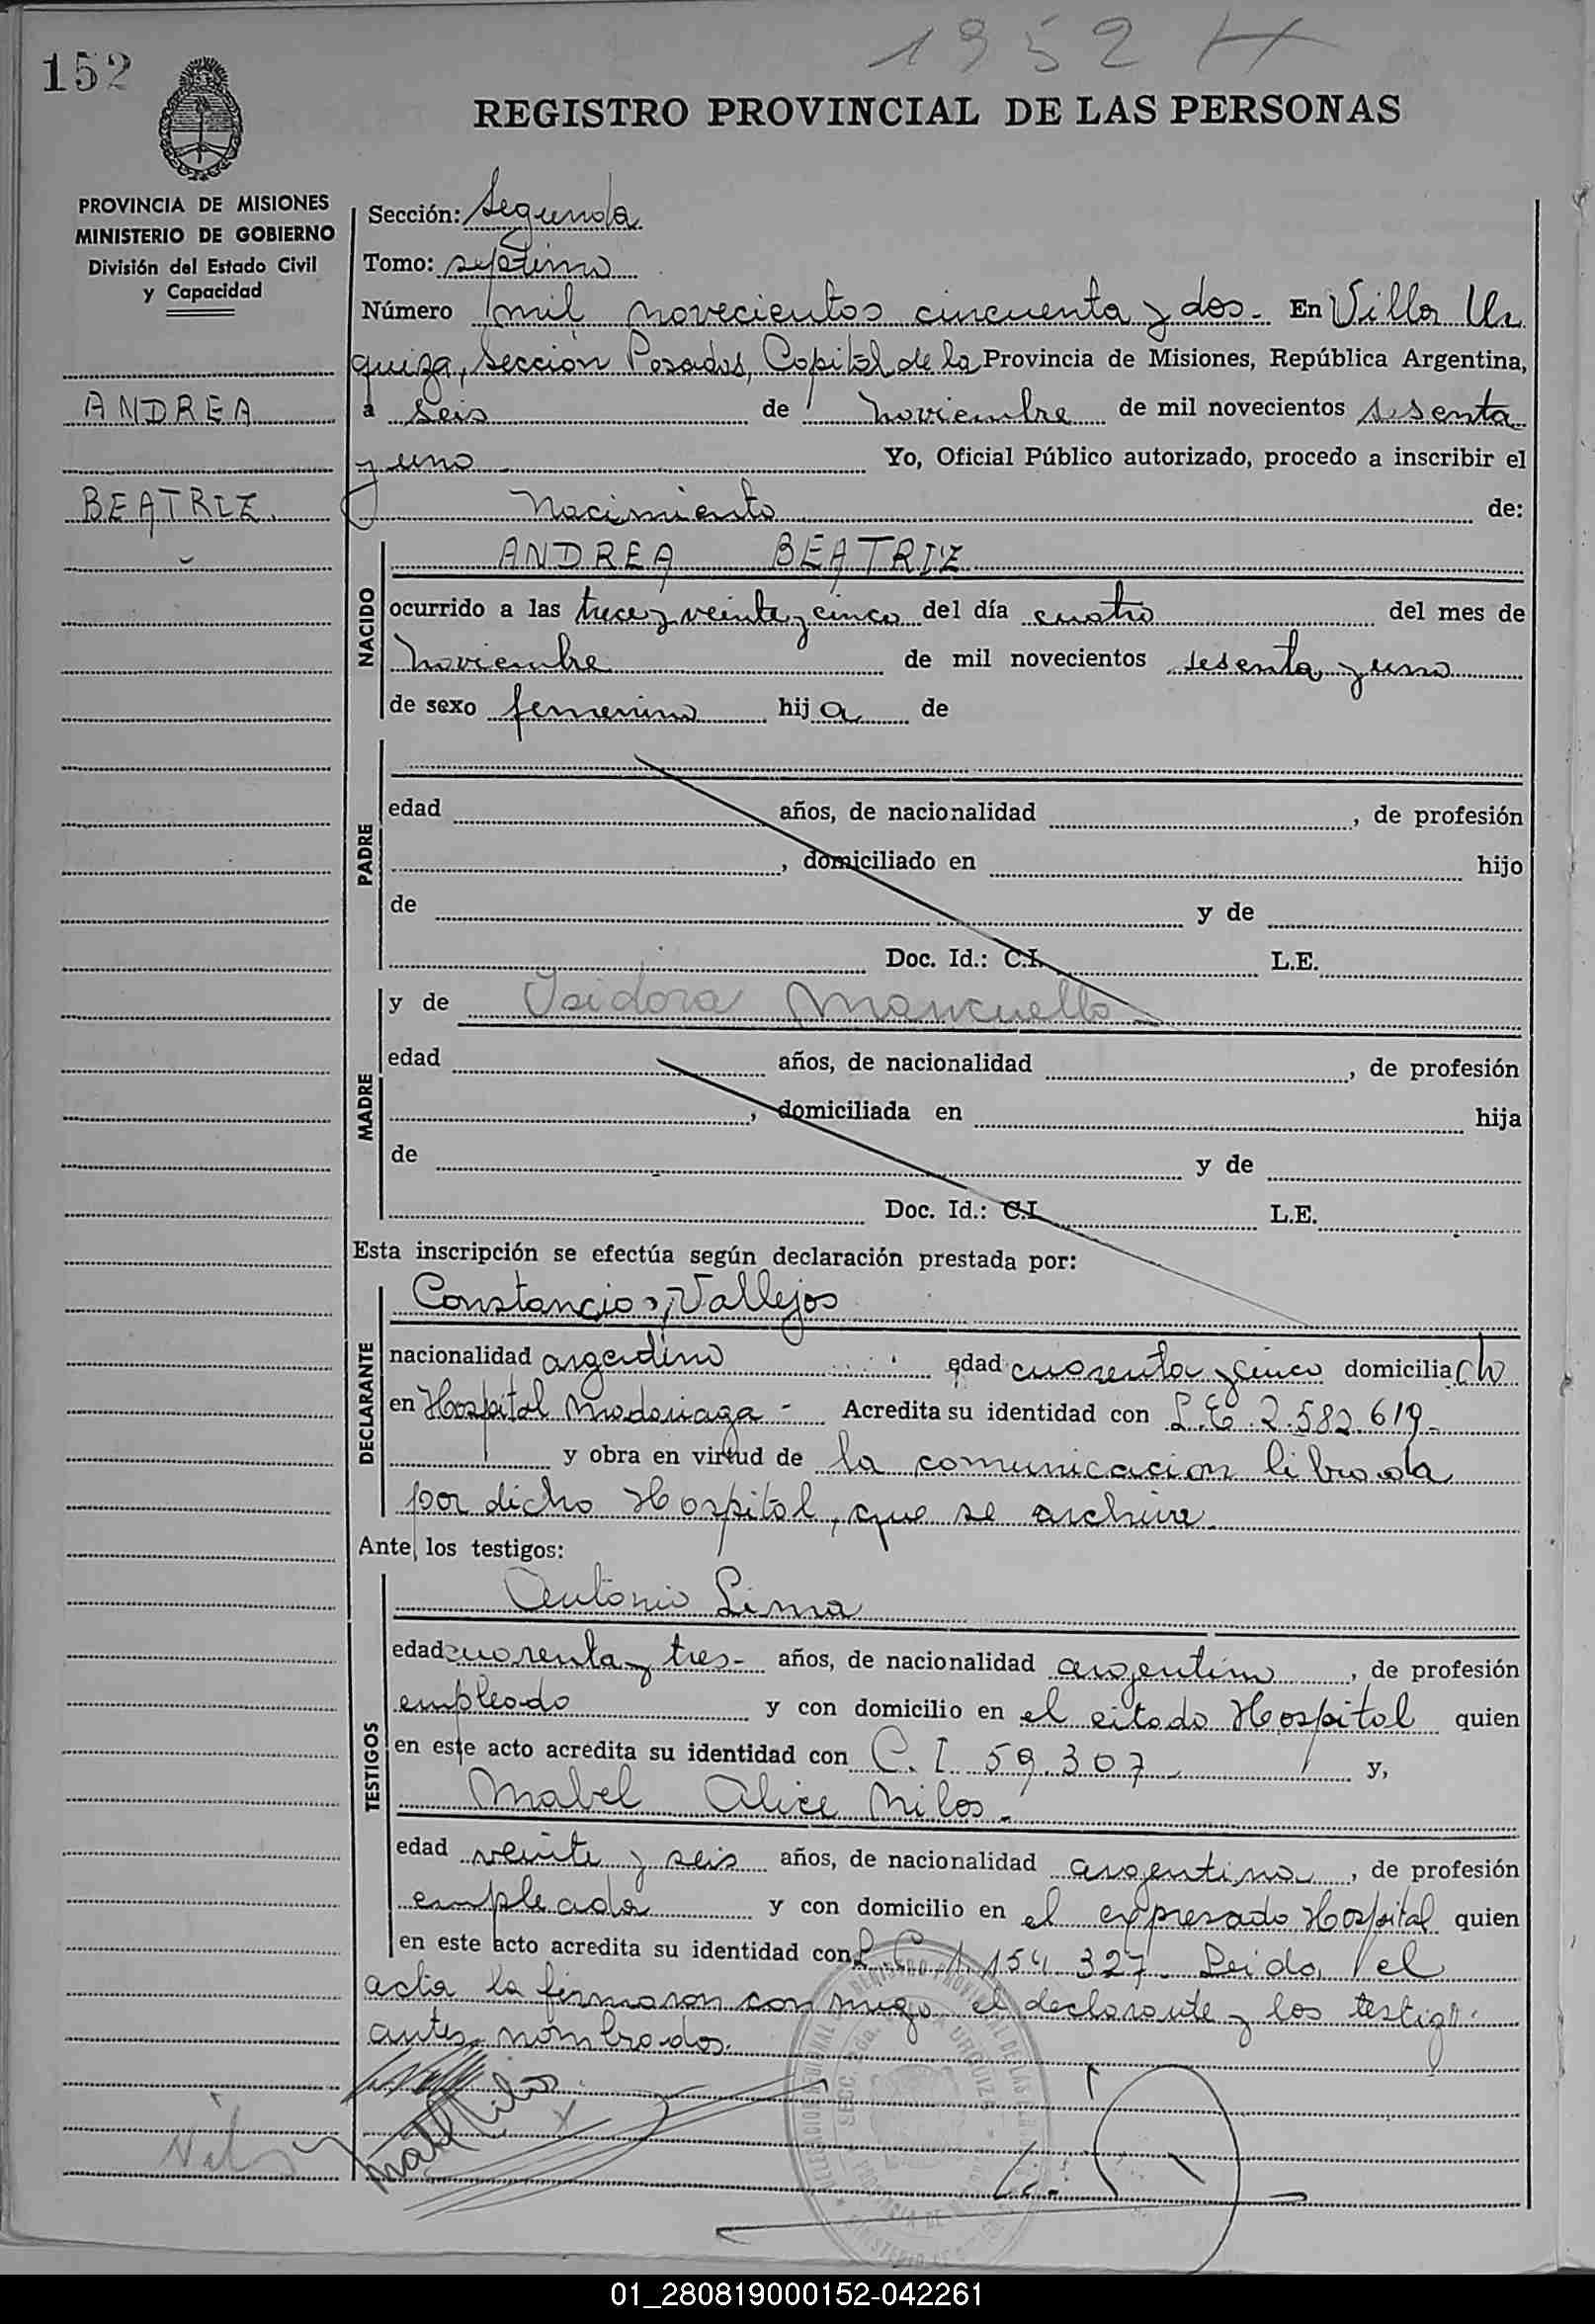 1952
152
REGISTRO PROVINCIAL DE LAS PERSONAS
PROVINCIA DE MISIONES
MINISTERIO DE GOBIERNO
División del Estado Civil
y Capacidad
ANDREA
BEATRIZ.
Sección: Segunda
Tomo: septimo
Número mil novecientos cincuenta y dos.- En Villa Ur
quiza, Sección Posadas, Capital de la Provincia de Misiones, República Argentina,
a seis de noviembre de mil novecientos sesenta
y uno Yo, Oficial Público autorizado, procedo a inscribir el
Nacimiento de:
NACIDO
ANDREA BEATRIZ
ocurrido a las trece y veinte y cinco del día cuatro del mes de
noviembre de mil novecientos sesenta y uno
de sexo femenino hija de
PADRE
edad años, de nacionalidad , de profesión
, domiciliado en hijo
de y de
Doc. Id.: C.I. L.E.
MADRE
y de Isidora Mancuello
edad años, de nacionalidad , de profesión
, domiciliada en hija
de y de
Doc. Id.: C.I. L.E.
Esta inscripción se efectúa según declaración prestada por:
DECLARANTE
Constancio Vallejos
nacionalidad argentino edad cuarenta y cinco domiciliado
en Hospital Madariaga - Acredita su identidad con L.E. 2.582.619-
y obra en virtud de la comunicacion librada
por dicho Hospital, que se archiva
Ante los testigos:
TESTIGOS
Antonio Lima
edad cuarenta y tres- años, de nacionalidad argentino, de profesión
empleado y con domicilio en el citado Hospital quien
en este acto acredita su identidad con C.I 59.307 y,
Mabel Alice Milos.-
edad veinte y seis años, de nacionalidad argentina, de profesión
empleada y con domicilio en el expresado Hospital quien
en este acto acredita su identidad con L.C. 1.154.327- Leida el
acta la firmaron conmigo el declarante y los testigos
antes nombrados.
01_280819000152-042261